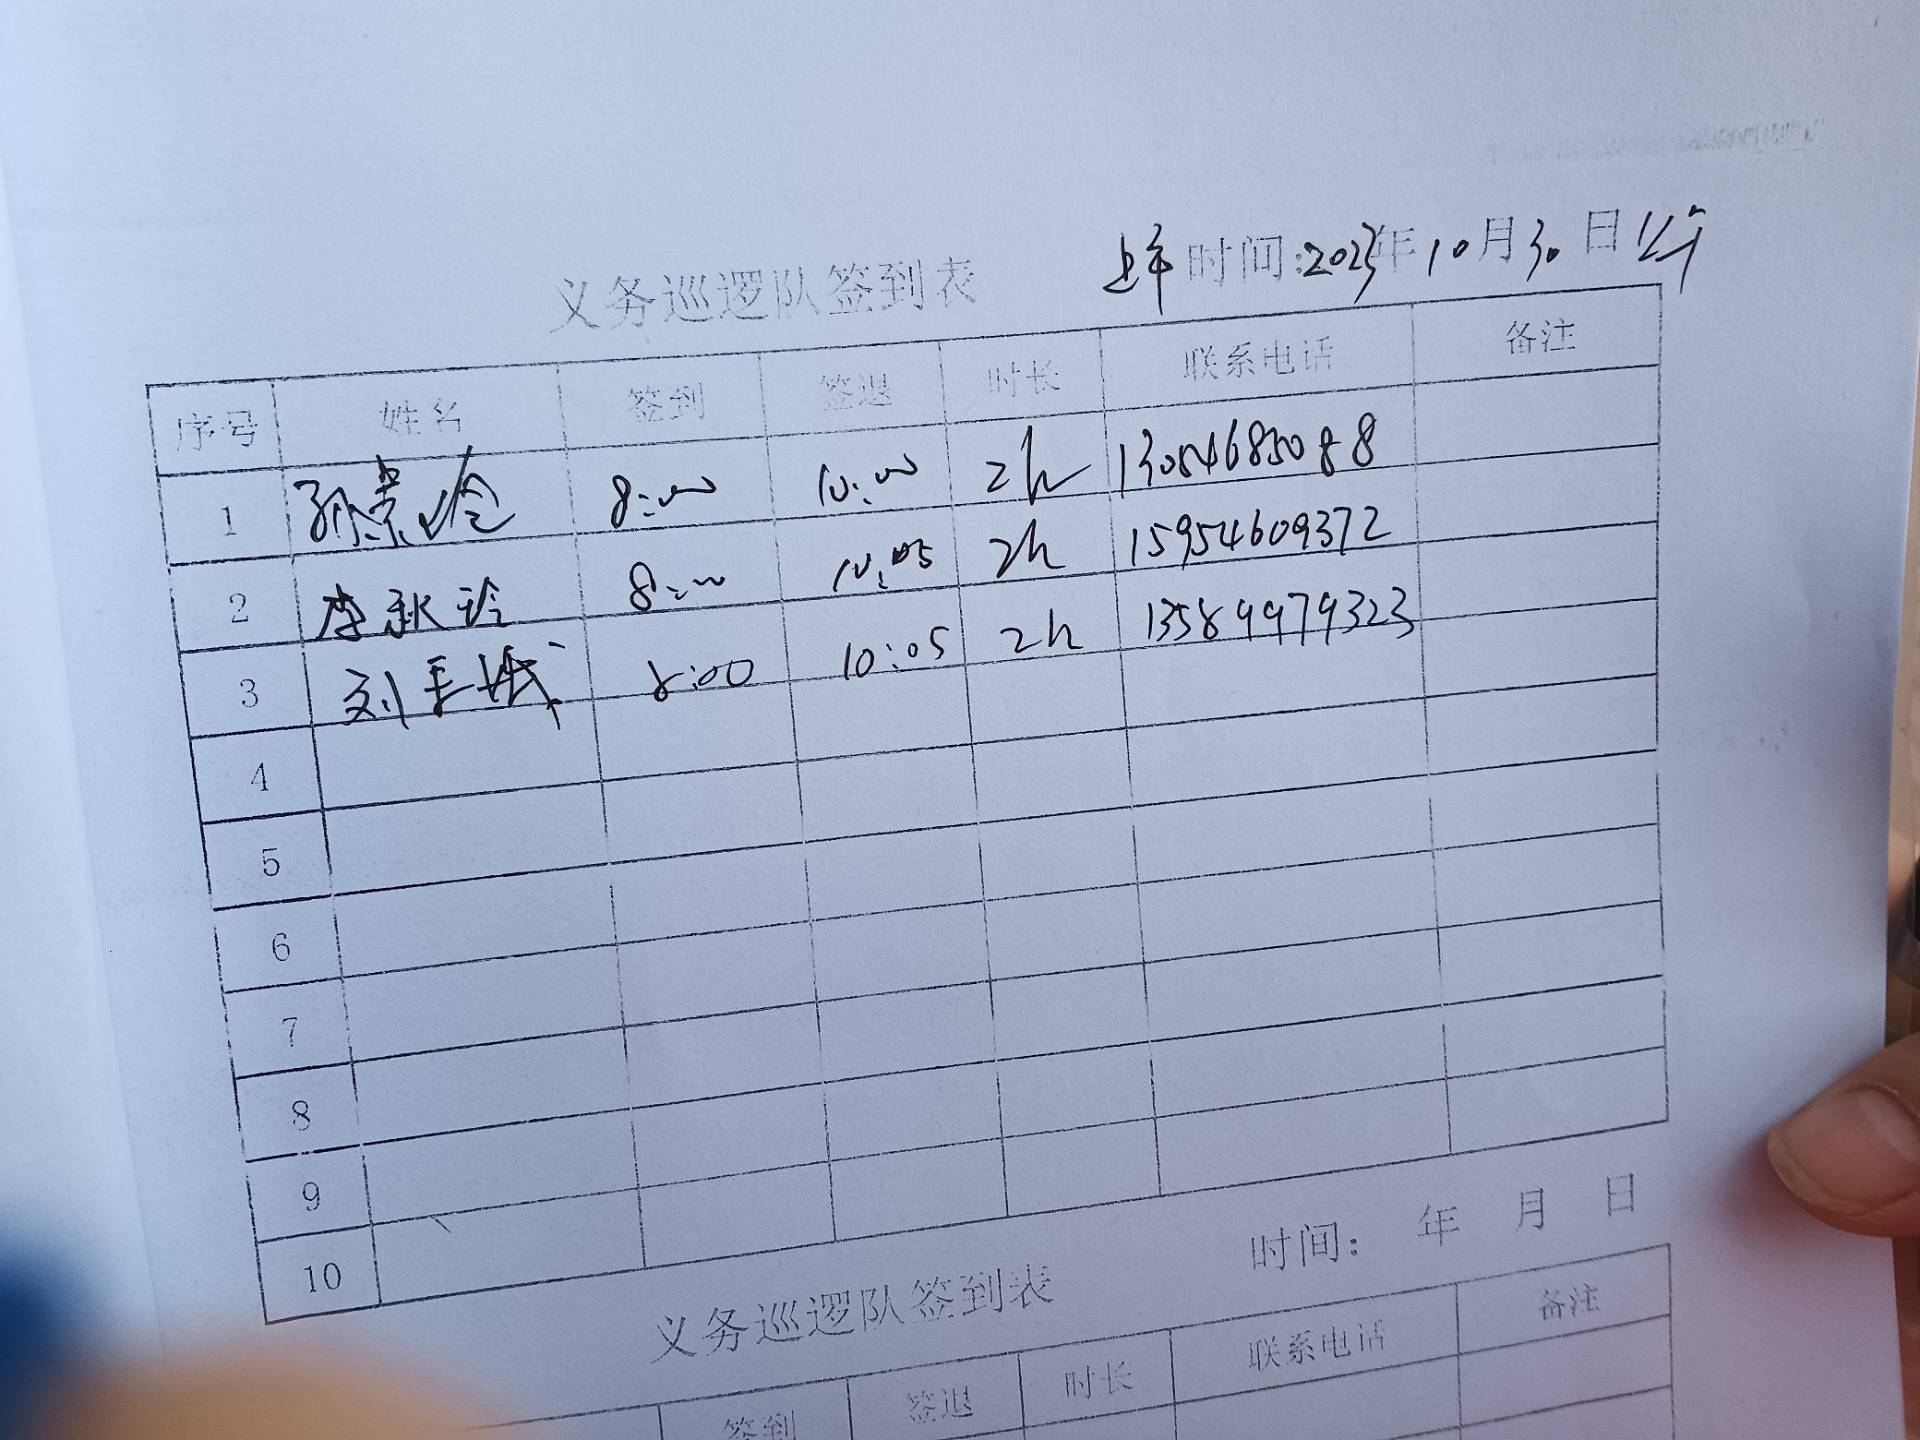 义务巡逻队签到表 上午 时间:2023年10月30日上午
序号 姓名 签到 签退 时长 联系电话 备注
1 8:00 10:00 2h
2 李秋玲 8:00 10:05 2h 15954609372
3 刘 8:00 10:05 2h 13589979323
4
5
6
7
8
9
10
义务巡逻队签到表 时间: 年 月 日
签到 签退 时长 联系电话 备注